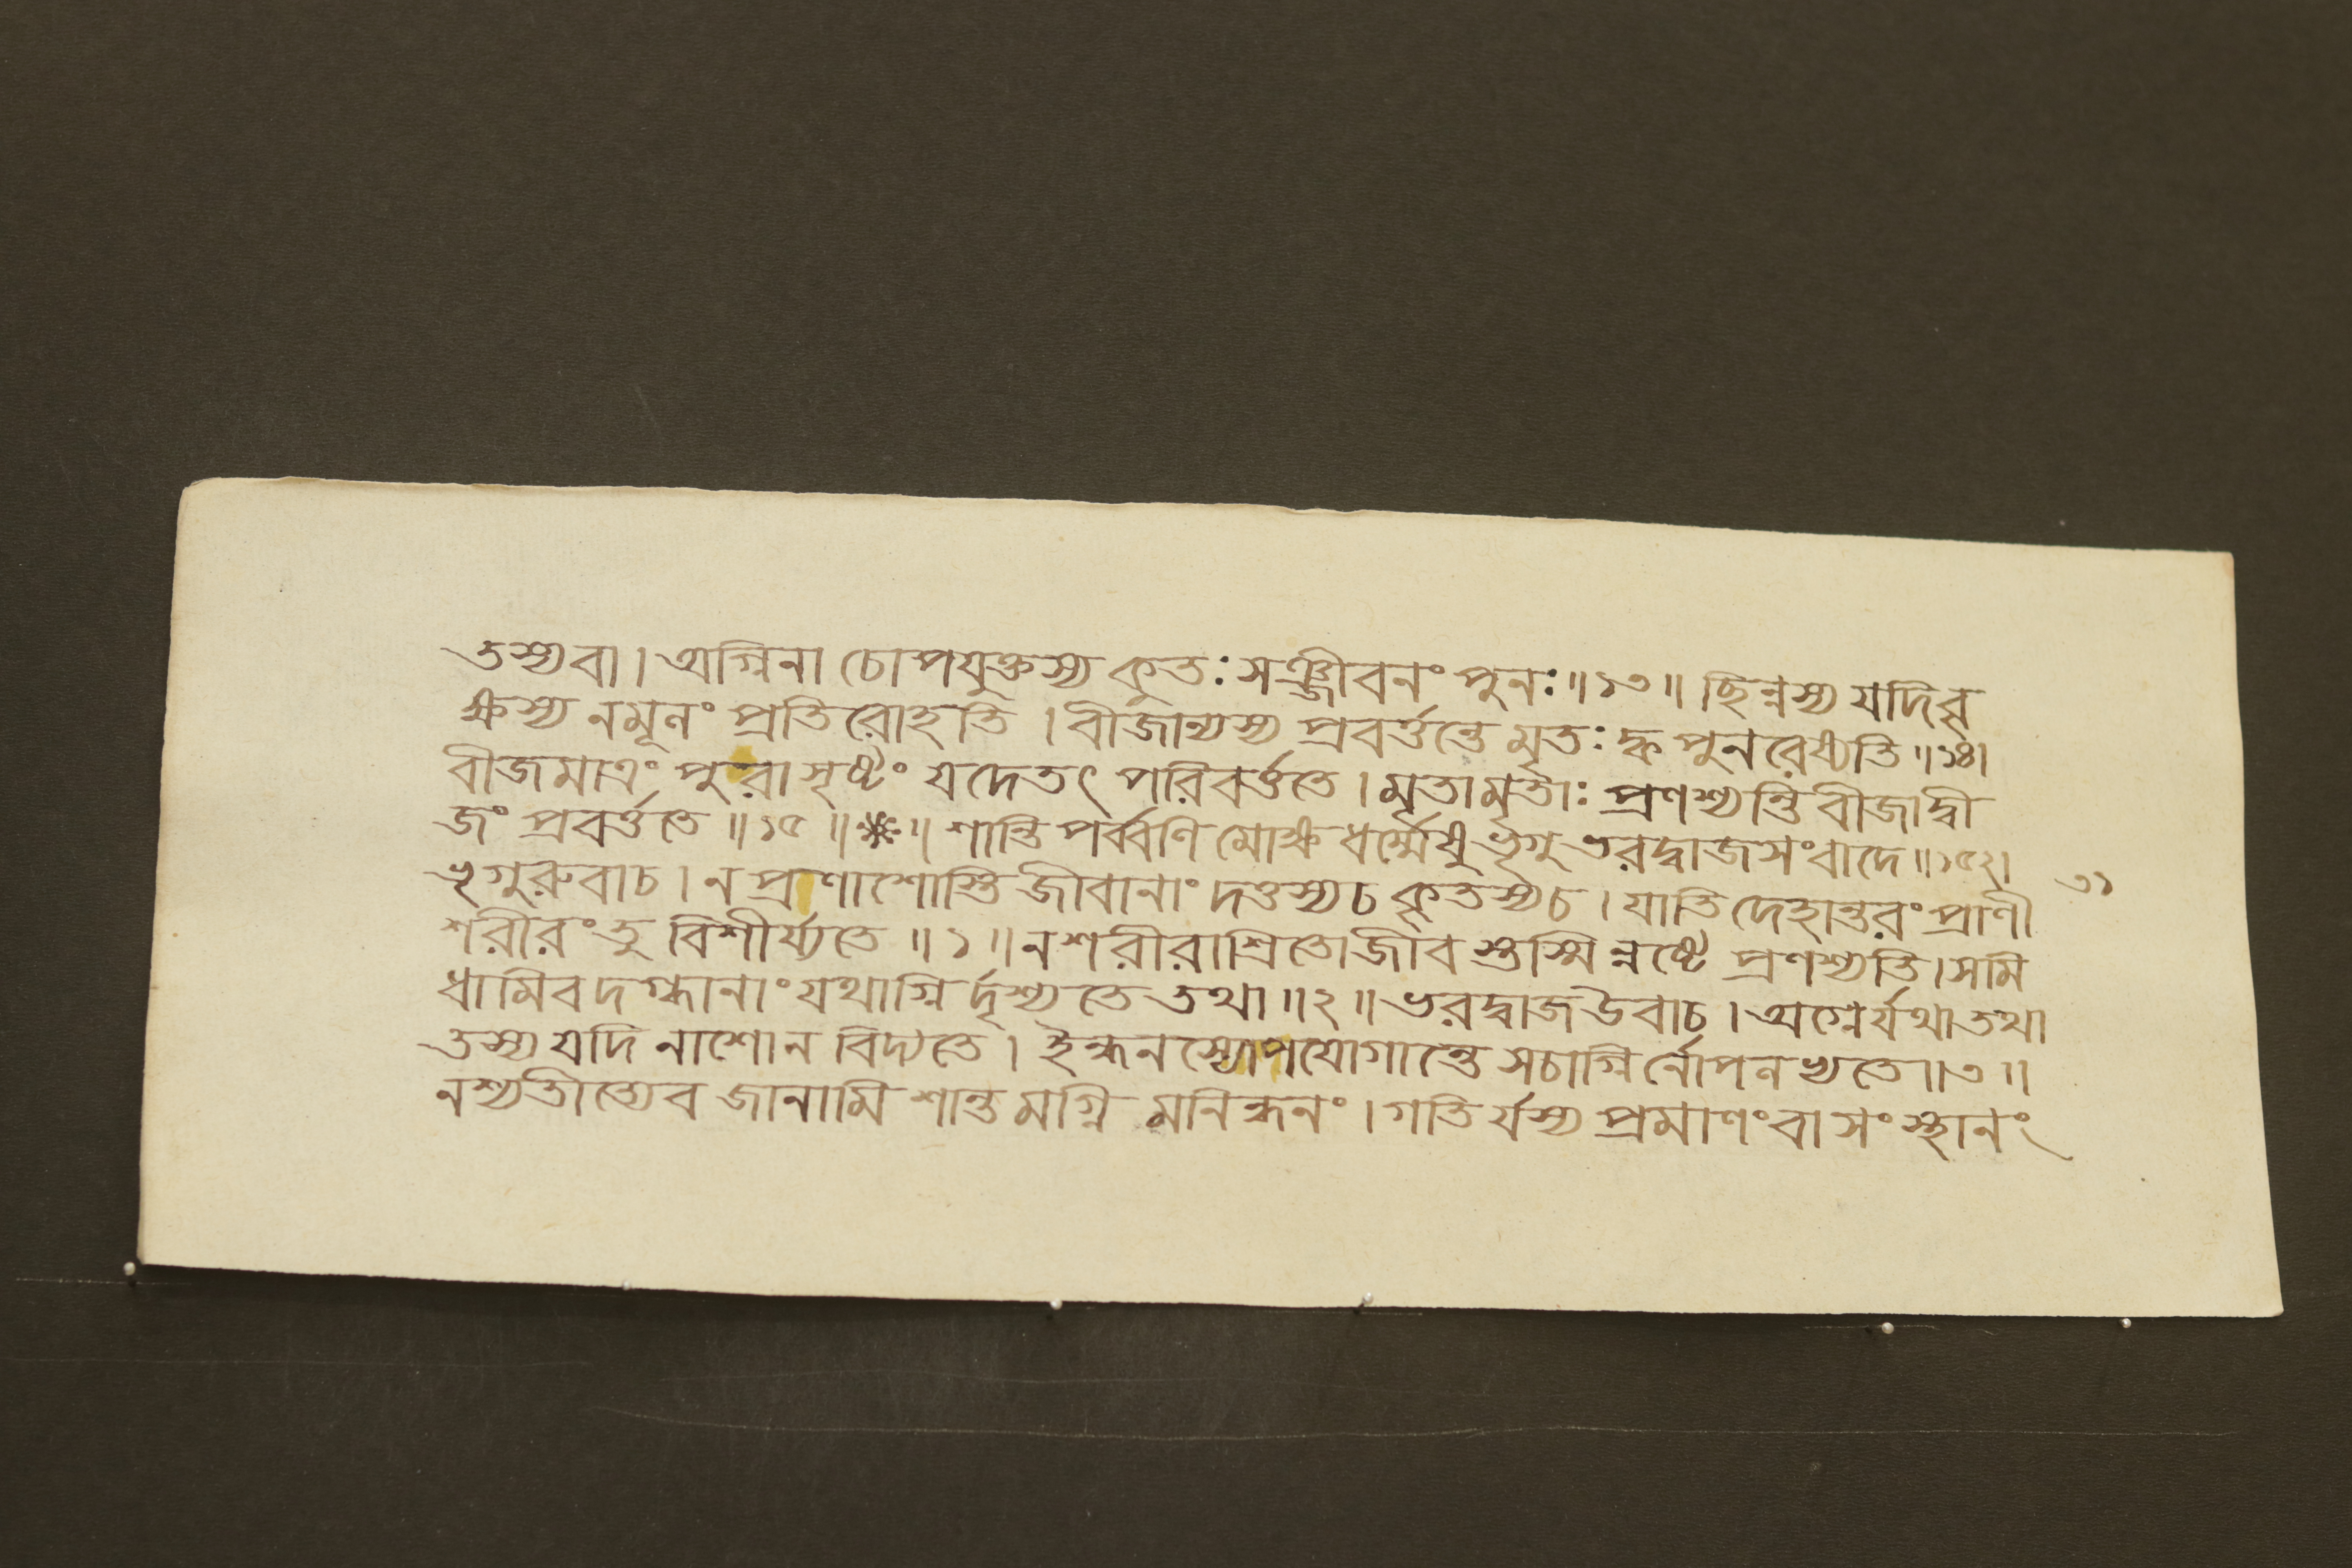 তস্যবা। অগ্নিনা চোপযুক্তস্য কুতঃ সঞ্জীবনং পুনঃ॥১৩॥ ছিন্নস্য যদিবৃ
ক্ষস্য নমূনং প্রতিরোহতি । বীজান্যস্য প্রবর্ত্তন্তে মৃতঃ ক্ব পুনরেষ্যতি॥১৪।
বীজমাত্রং পুরাসৃষ্টং যদেতৎ পরিবর্ত্ততে। মৃতামৃতাঃ প্রণশ্যন্তি বীজাদ্বী
জং প্রবর্ত্ততে॥১৫॥❋॥ শান্তিপর্ব্বণি মোক্ষধর্ম্মেষু ভৃগুভরদ্বাজসংবাদে॥১৫২।
ভৃগুরুবাচ। ন প্রাণাশোস্তি জীবানাং দত্তস্যচ কৃতস্যচ। যাতি দেহান্তরং প্রাণী
৩১
শরীরং তু বিশীর্য্যতে॥১॥ নশরীরাশ্রিতোজীবস্তস্মিন্নষ্টে প্রণশ্যতি। সমি
ধামিবদগ্ধানাং যথাগ্নির্দৃশ্যতে তথা॥২॥ ভরদ্বাজউবাচ। অগ্নের্যথাতথা
তস্য যদি নাশোন বিদ্যতে। ইন্ধনস্যোপযোগান্তে সচাগ্নির্নোপনখ্যতে॥৩॥
নশ্যতীত্যেব জানামি শান্তমগ্নি মনিন্ধনং। গতির্যস্য প্রমাণংবা সংস্থানং